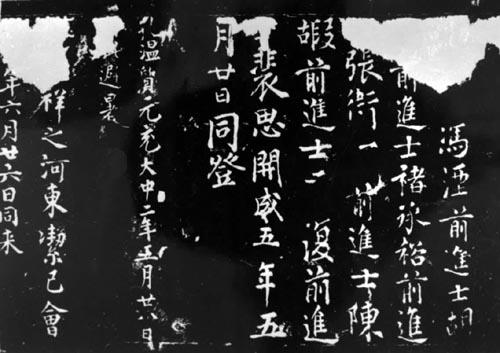 馮涯前進士胡
前進士褚承裕前進
張衜一 前進士陳
嘏前進士 復前進
裴思開成五年五
月廿日同登
溫質元充大中二年五月廿六日
避暑
祥之河東潔己會
年六月廿六日同来